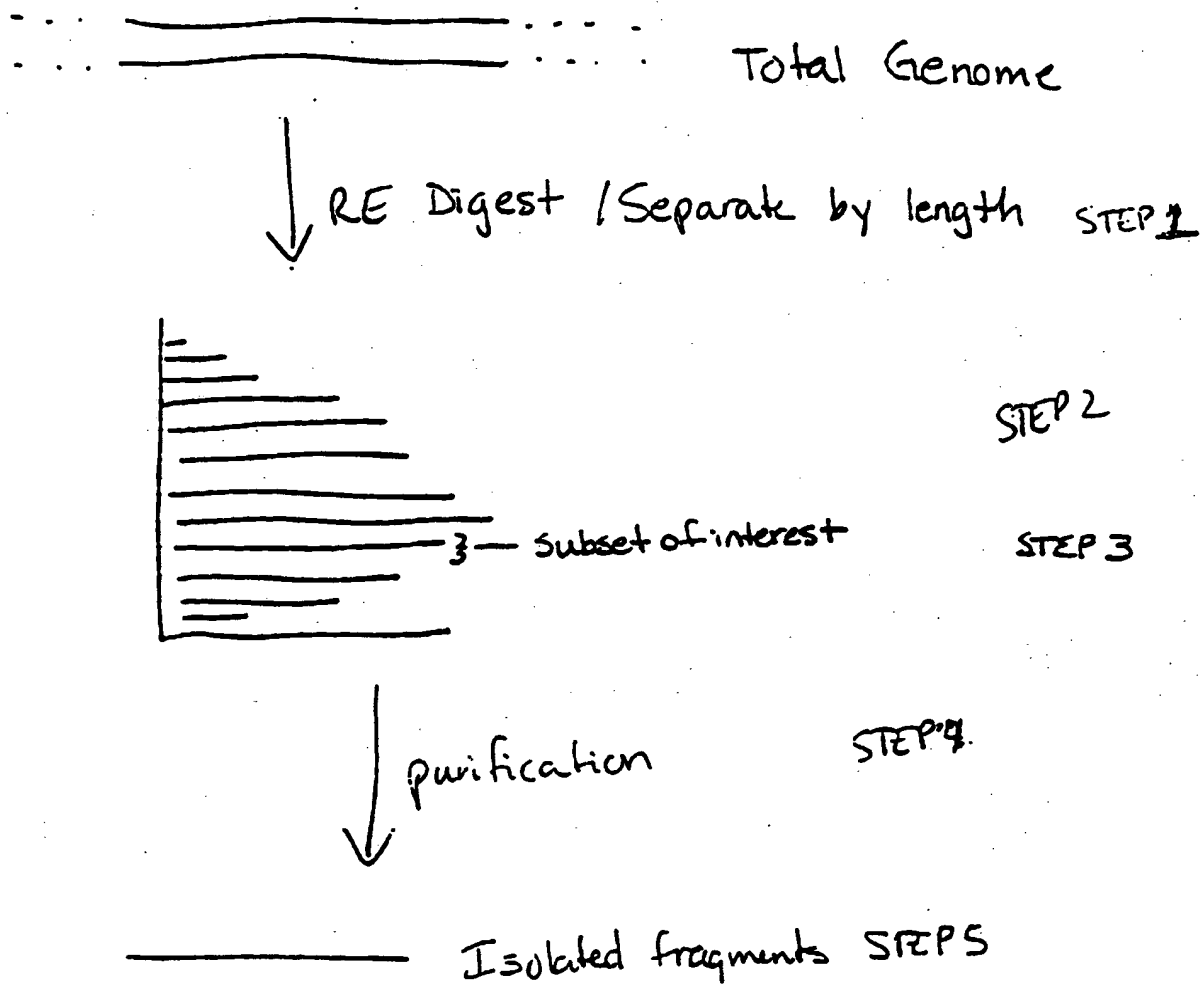 Total Genome
RE Digest / Separate by length STEP 1
STEP 2
}— subset of interest STEP 3
purification STEP 4.
Isolated fragments STEP 5